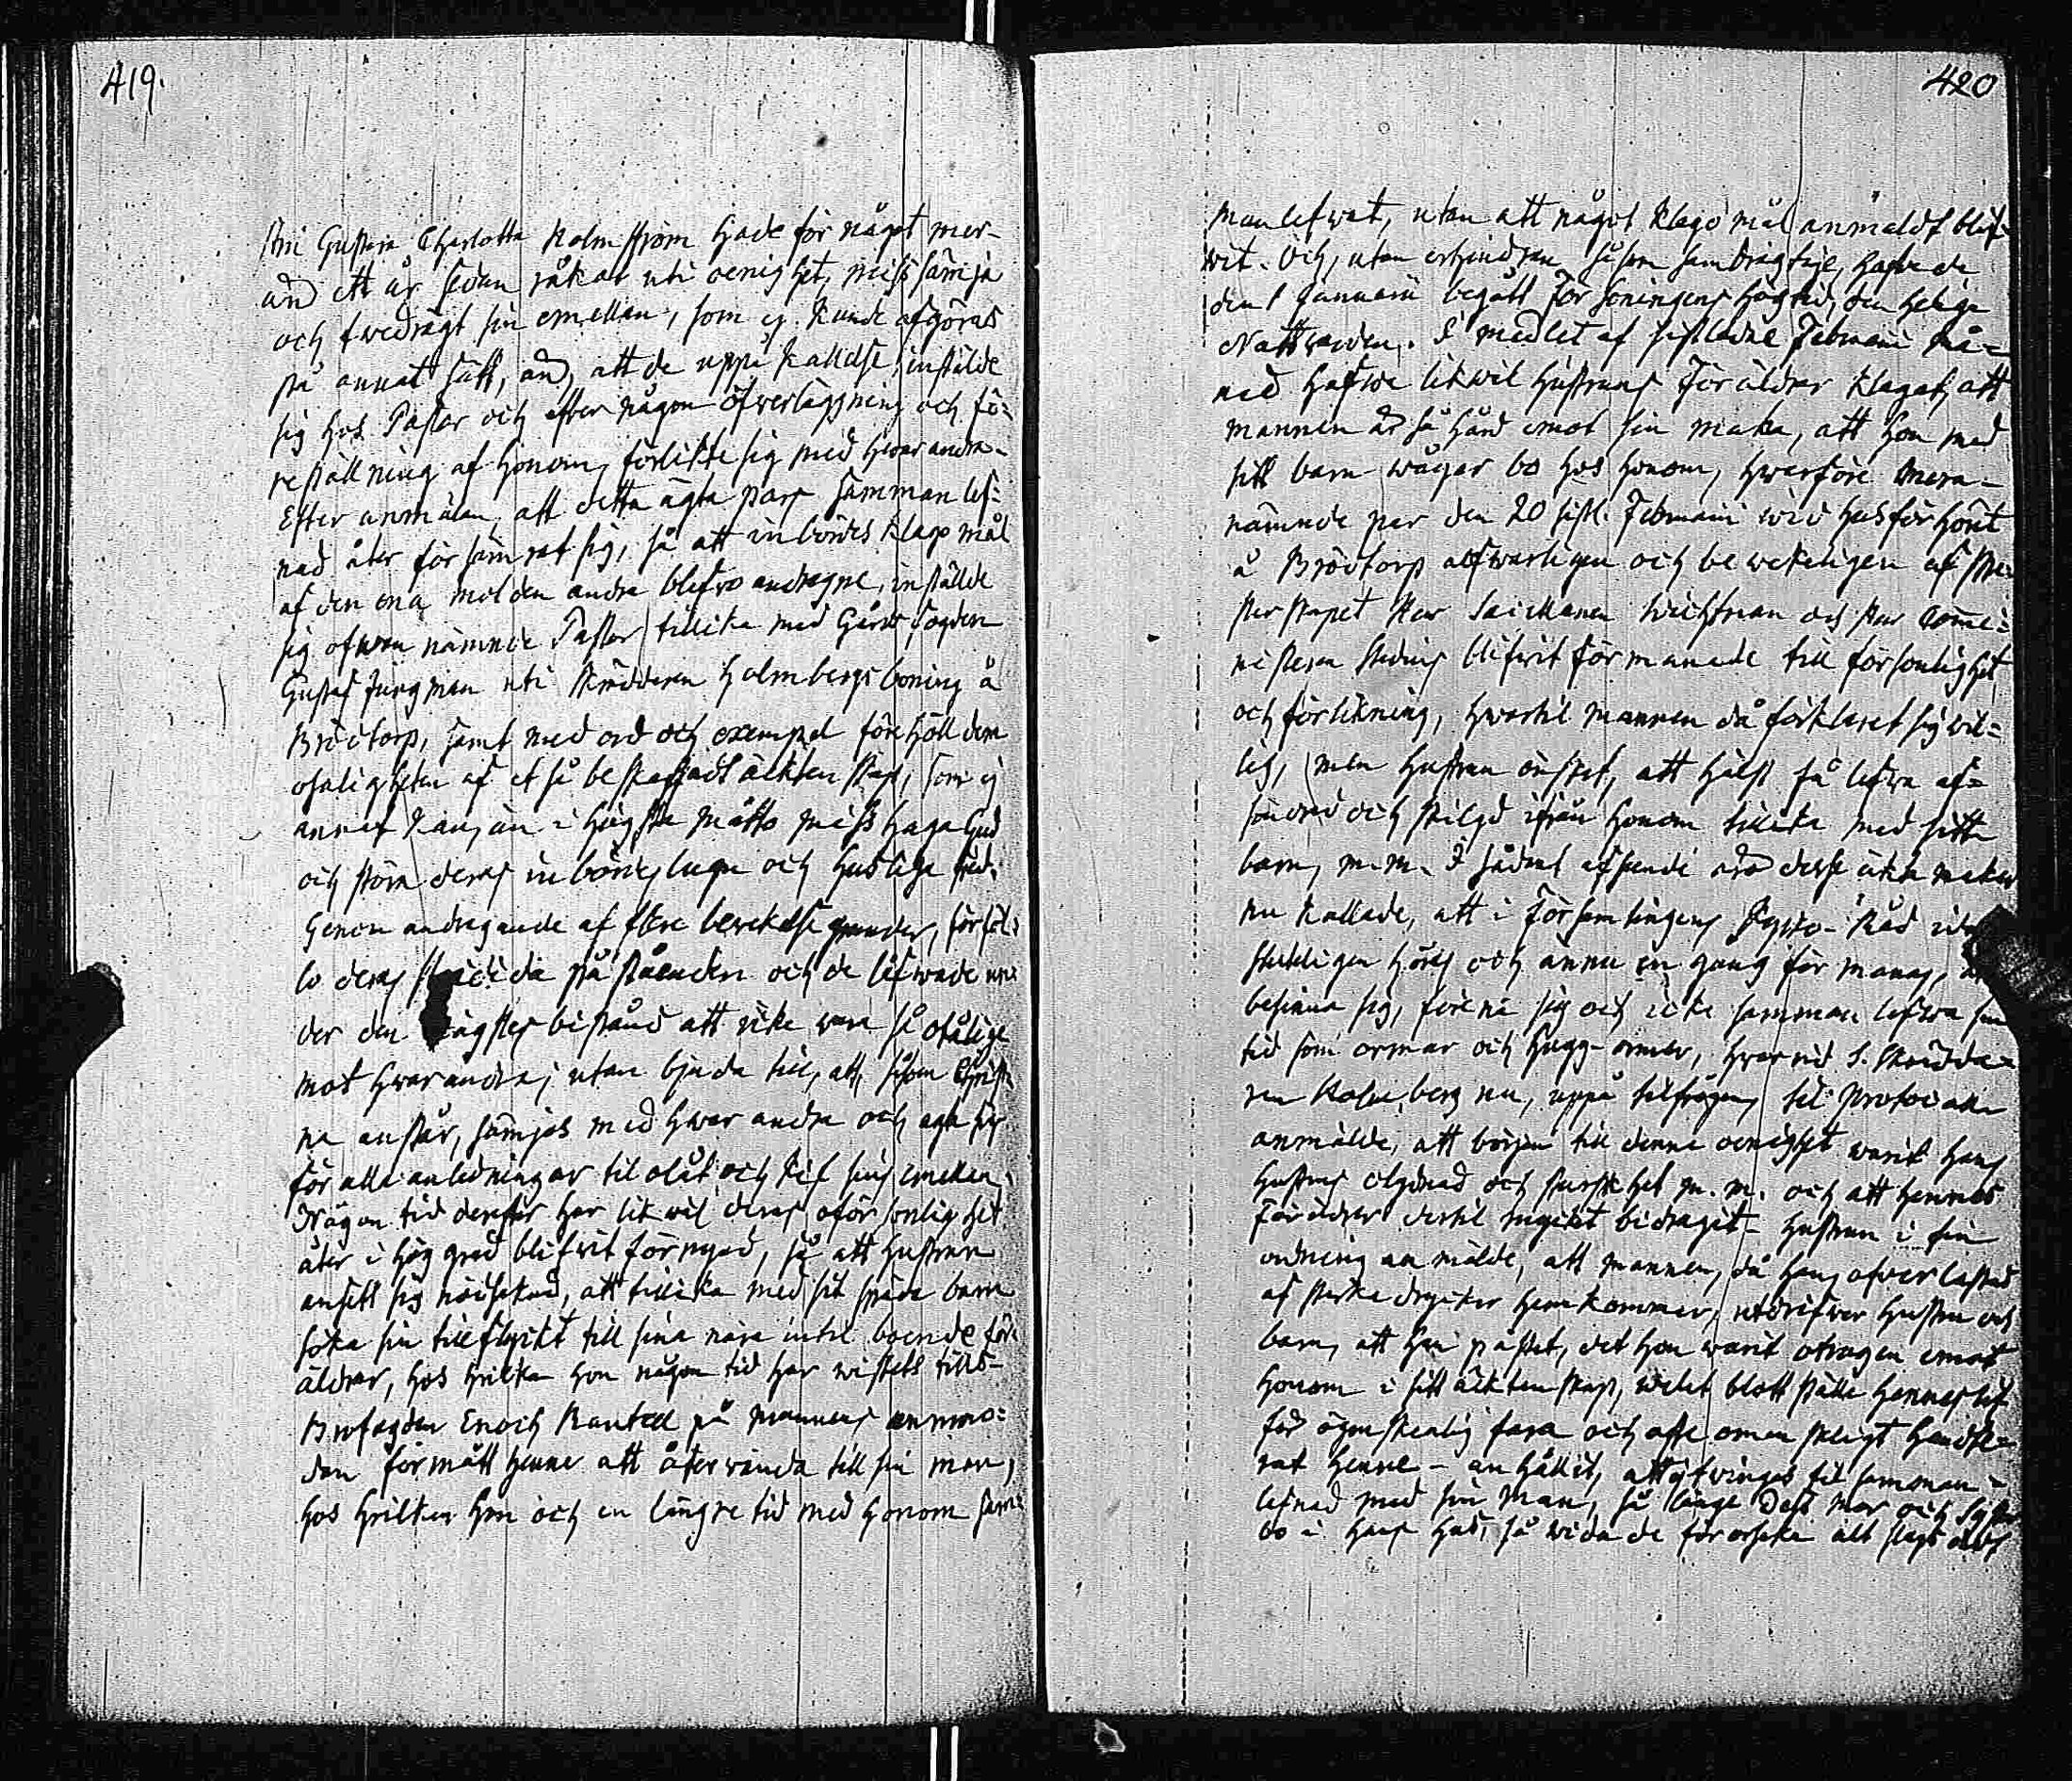 419.
stru Gustava Charlotta Holmström hade för något mer-
änd ett år sedan råkat uti oenighet, missämja
och twedrägt sin emellan, som ej kunde afgöras
på annat sätt, änd att de uppå kallelse instälde
sig hos Pastor och efter någon öfwerläggning och fö-
reställning af honom, förlikte sig med hwar andra.
Efter anmälan, att detta ägta pars sammanlef-
nad åter försämrat sig, så att inbördes klagomål
af den ena mot den andra blefwo andragne, instälde
sig ofwannämnde Pastor tillika med Gårdsfogden
Gustaf Jungman uti Skräddaren Holmbergs boning å
Brödtorp, samt med ord och exempel föreHöll dem
osaligheten af et så beskaffadt äktenskap, som ej
annat kan, än i högsta måtto misshaga Gud
och störa deras inbördes lugn och husliga frid.
Genom andragande af flere bewekelse grunder, förföl-
lo deras påståenden och de lofwade un-
der den Högstes bistånd att icke wara så otålige
mot hwarandra, utan bjuda till, att, såsom Christ-
na anstår, sämjas med hwar andra och akta sig
för alla anledningar til olåt och kif sins emellan.
Någon tid derefter har likwil deras oförsonlighet
åter i hög grad blifwit förnyad, så att hustrun
ansett sig nödsakad, att tillika med sit späda barn
söka sin tillflyckt till sina nära intil boende för-
äldrar, hos hwilka hon någon tid har wistats tills
Brofogden Enoch Rantell på mannens anmo-
dan förmått henne att återwända till sin man,
hos hwilken hon och en längre tid med honom sam-
420
manlefwat, utan att något klagomål anmäldt blif-
wit. Och, utan erhindran såsom samdrägtige, hafwa de
den 1 Januarii begått Försoningens högtid, den helige
Nattwarden. I medlet af sistledne Februarii må-
nad hafwa likwil hustruns Föräldrar klagat, att
mannen är så hård emot sin maka, att hon med
sitt barn wågar bo hos honom, hwarföre mera-
nämnde par den 20 sistl. Februarii wid husförhöret
å Brödtorp alfwarligen och bewekeligen af Pre-
sterskapet
blifwit förmanade till försonlighet
och förlikning, hwartil mannen då förklarat sig wil-
lig, men hustrun önskat, att hälst få lefwa af-
söndrad och skilgd ifrån honom tillika med sitt
barn, m.m. I sådant afseende äro desse äkta makar
nu kallade, att i Församlingens Kyrko-Råd
skilteligen höras och ännu en gång förmanas, att
besinna sig, förena sig och icke sammanlefwa sin
tid som ormar och hugg-ormar, hwarwid S. Skrädda-
ren Holmberg nu, uppå tilfrågan, til Protocollet
anmälde, att början till denna oenighet warit hans
hustrus olydnad och m.m. och att hennes
Föräldrar dertil mycket bidragit - Hustrun i sin
ordning anmälde, att mannen, då han öfwerlastad
af starka drycker hemkommer, utdrifwer hustru och
barn, att han påstått, det hon warit otrogen emot
honom i sitt äktenskap, welat blottställa hennes lif
för ögonskenlig fara och ofta omenskligt handte-
rat henne - anhållit, att ej twingas til samman-
lefnad med sin man, så länge dess mor och Syster
bo i hans hus, så wida de förorsaka alt slags